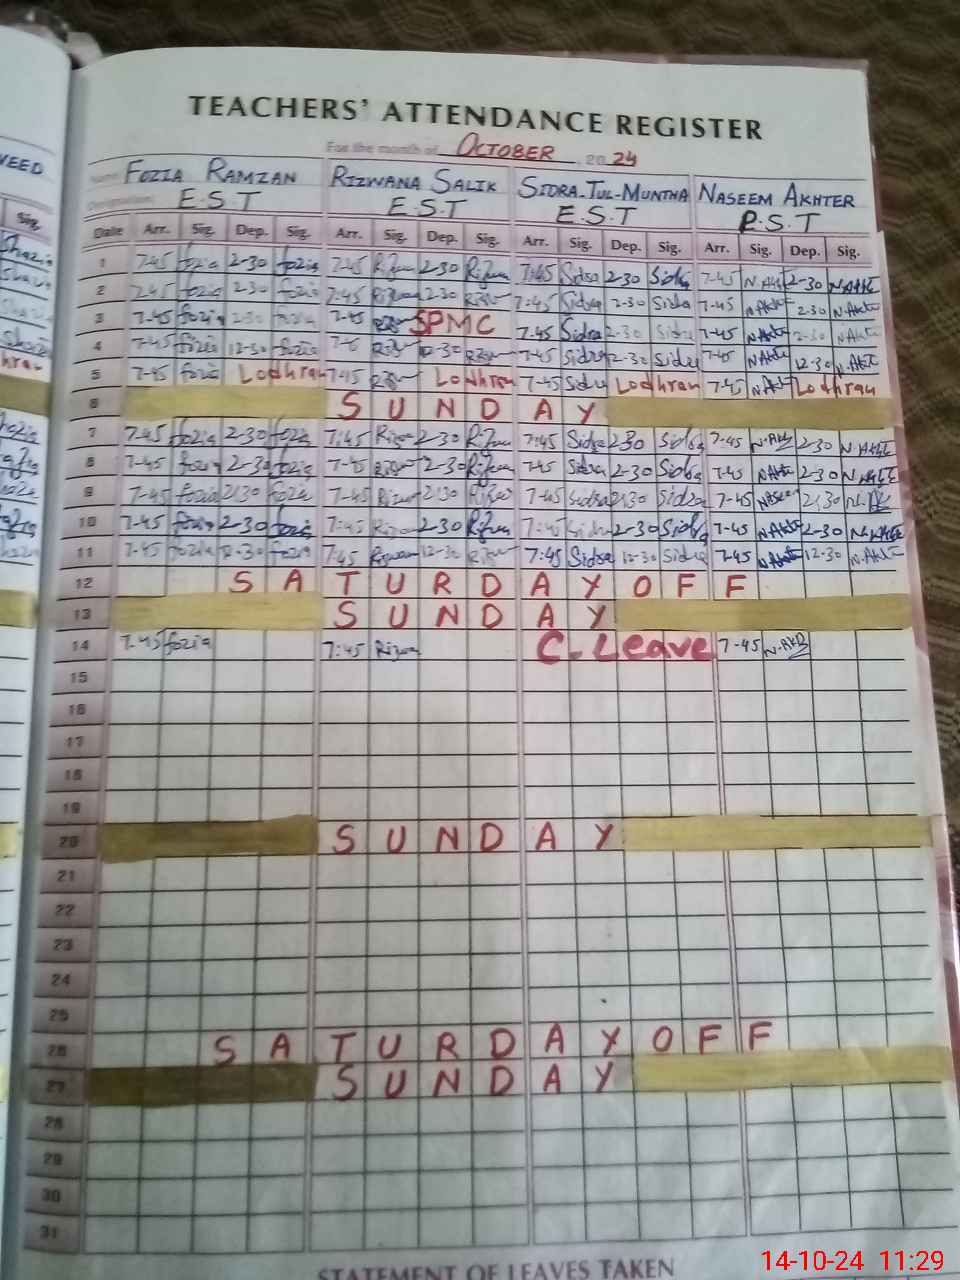 TEACHERS' ATTENDANCE REGISTER
For the month of OCTOBER, 2024
VEED Name FOZIA RAMZAN RIZWANA SALIK SIDRA-TUL-MUNTHA NASEEM AKHTER
Designation E.S.T E.S.T E.S.T P.S.T
Sig. Date Arr. Sig. Dep. Sig. Arr. Sig. Dep. Sig. Arr. Sig. Dep. Sig. Arr. Sig. Dep. Sig.
1 7-45 fozia 2-30 fozia 7-45 2-30 7:45 Sidra 2-30 Sidra 7-45 N.Akt 2-30 N.Akt
2 7-45 fozia 2-30 fozia 7:45 2-30 7:45 Sidra 2-30 Sidra 7-45 N.Akt 2-30 N.Akt
3 7-45 fozia 2-30 fozia 7-45 SPMC 7-45 Sidra 2-30 Sidra 7-45 N.Akt 2-30 N.Akt
4 7-45 fozia 12-30 fozia 12-30 7-45 Sidra 12-30 Sidra 7-45 N.Akt 12-30 N.Akt
5 7-45 fozia Lodhran 7-45 Lodhran 7-45 Sidra Lodhran 7-45 N.Akt Lodhran
6 SUNDAY
7 7-45 fozia 2-30 fozia 7:45 2-30 7:45 Sidra 2-30 Sidra 7-45 2-30 N.Akt
8 7-45 fozia 2-30 fozia 7-45 2-30 7-45 Sidra 2-30 Sidra 7-45 2-30 N.Akt
9 7-45 fozia 2:30 fozia 7-45 2:30 7-45 Sidra 2:30 Sidra 7-45 2:30
10 7-45 fozia 2-30 fozia 7:45 2-30 7:45 Sidra 2-30 Sidra 7-45 N.Akt 2-30 N.Akt
11 7-45 fozia 12-30 fozia 7:45 12-30 7:45 Sidra 12-30 Sidra 7-45 12-30 N.Akt
12 SATURDAY OFF
13 SUNDAY
14 7-45 fozia 7:45 C.Leave 7-45
15
16
17
18
19
20 SUNDAY
21
22
23
24
25
26 SATURDAY OFF
27 SUNDAY
28
29
30
31
STATEMENT OF LEAVES TAKEN
14-10-24 11:29